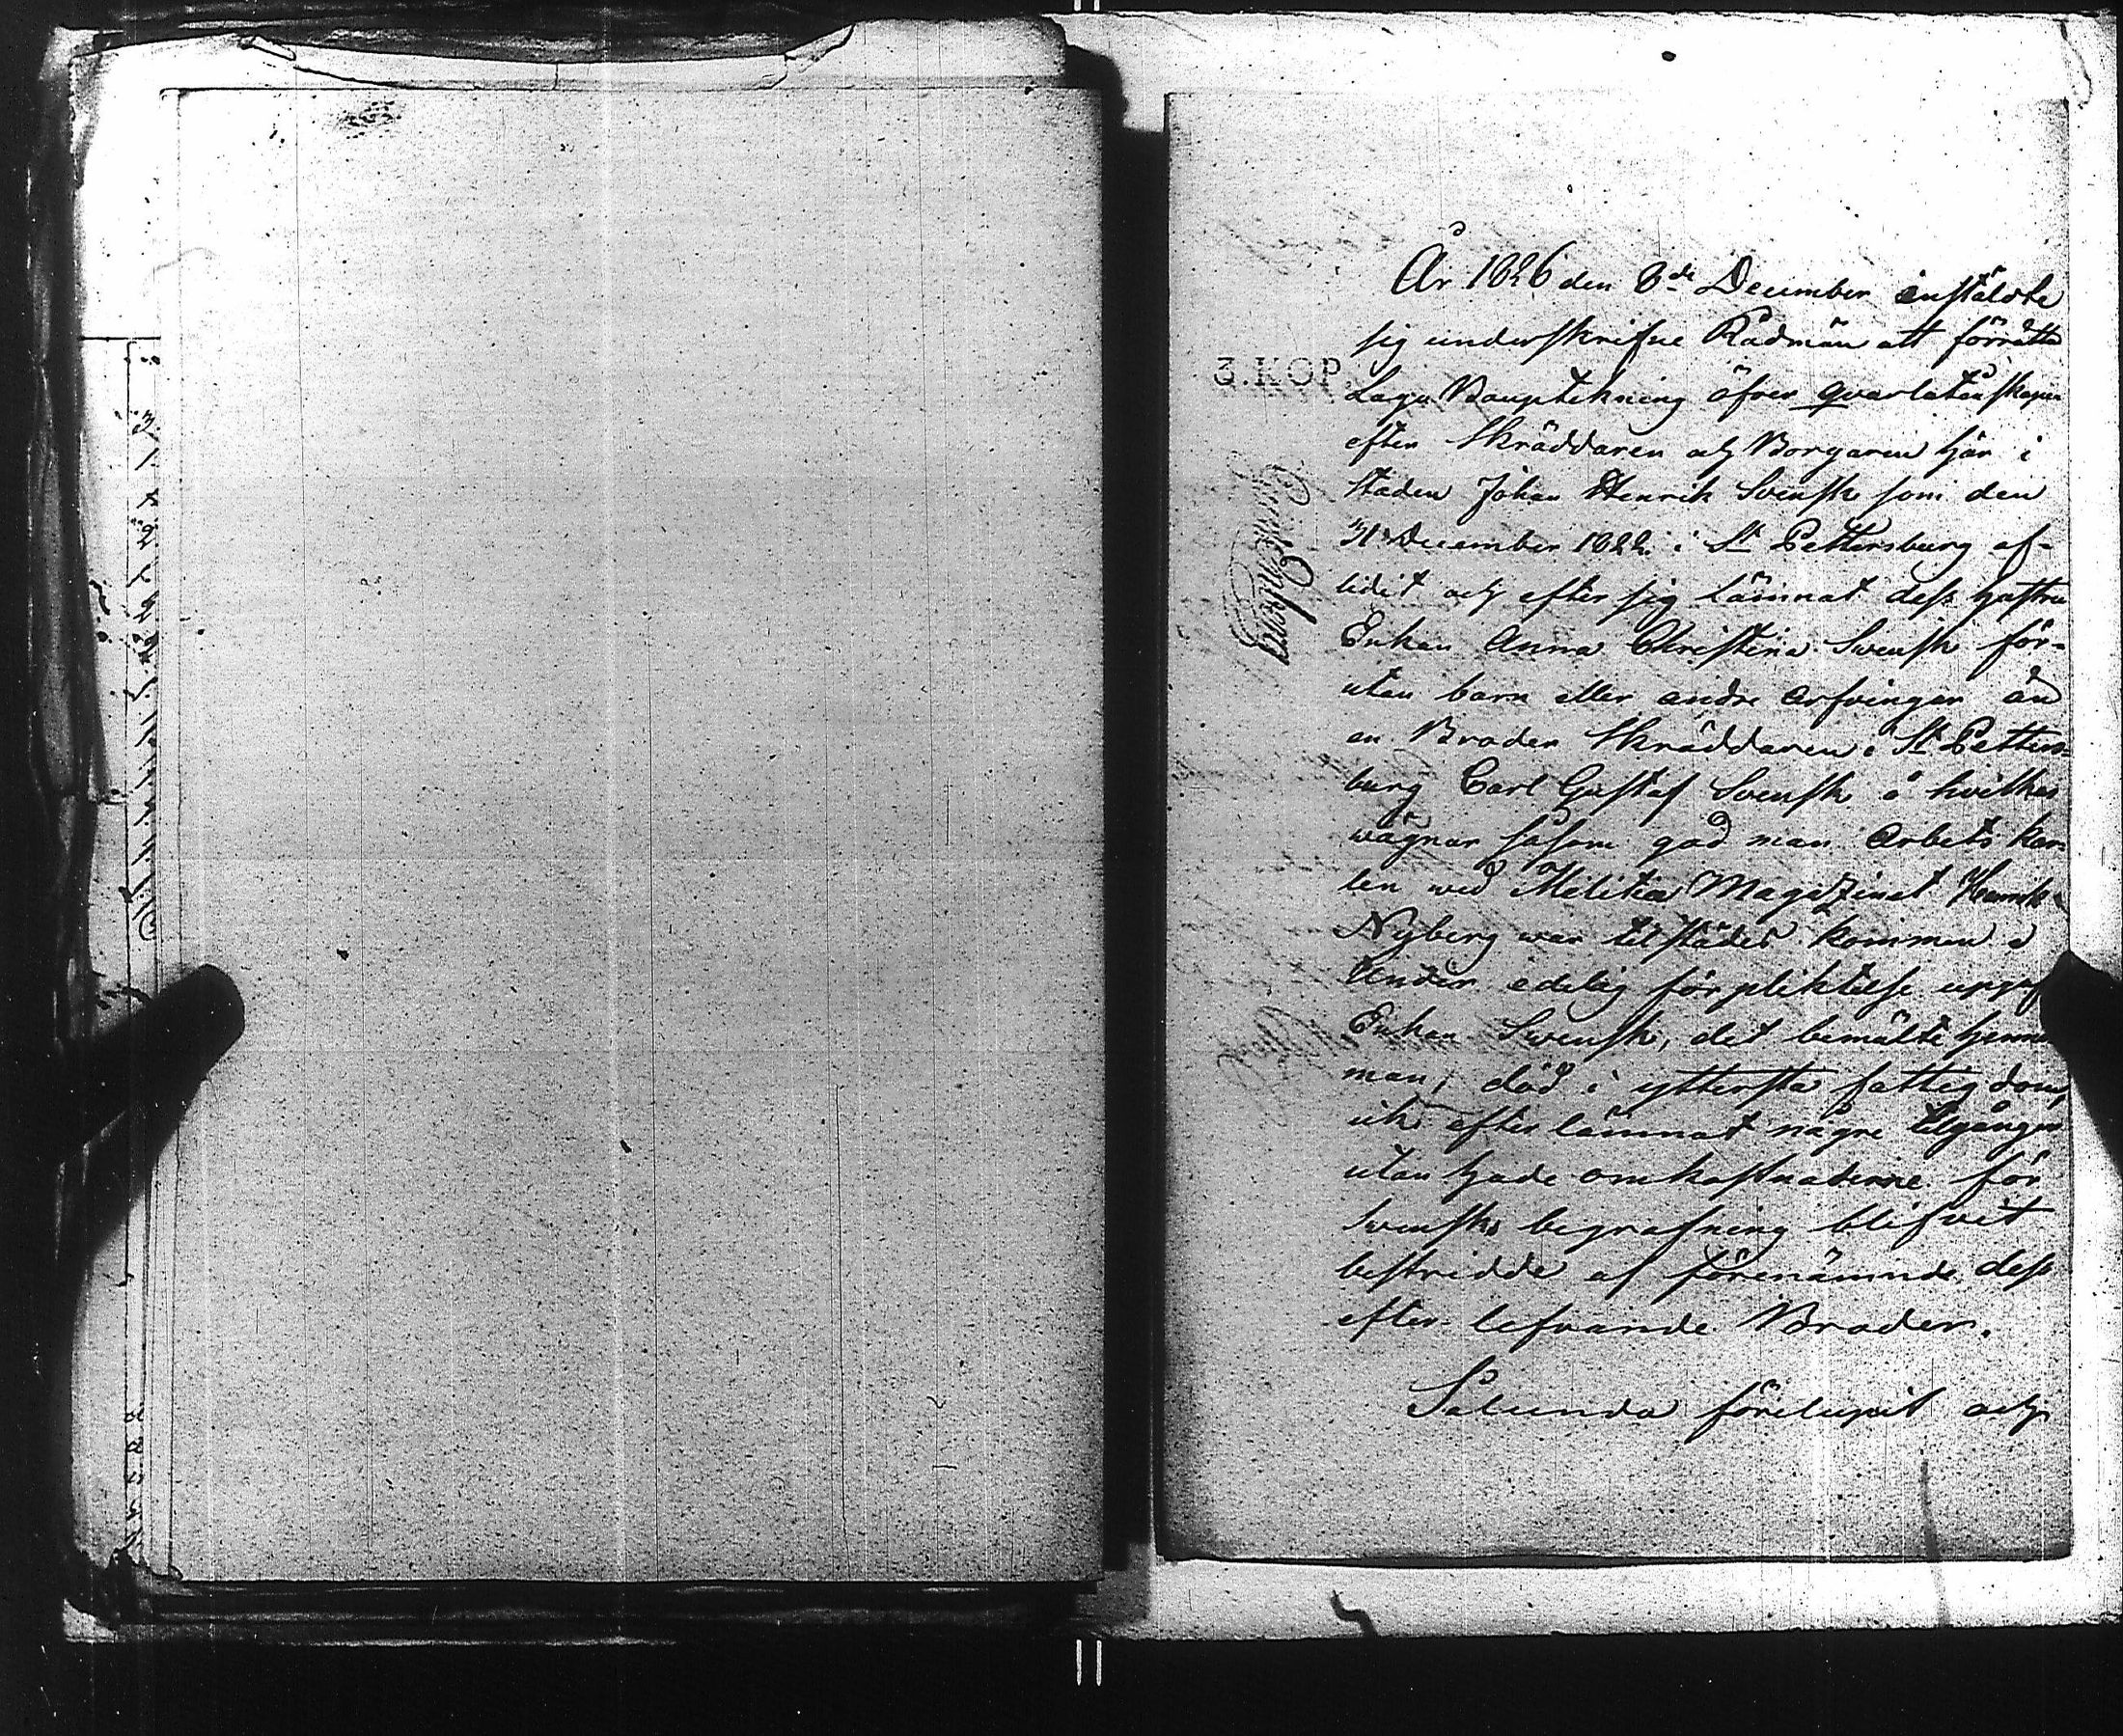 År 1826 den 8de December instälte
sig underskrifne Rådmän att förrätta
3. KOP.
Laga Bouptekning öfver qvarlåtenskapen
efter Skräddaren och Borgaren här i
staden Johan Henrik Svensk som den
31 December 1822 i St Pettersburg af-
lidit och efter sig lämnat dess hustru
Enkan Anna Christina Swensk för-
utan barn eller andre arfvingar än
en Broder Skräddaren i St Petters-
burg Carl Gustaf Svensk å hvilkes
wägnar såsom god man Arbets kar-
len wid Militæ Magazinet Henrik
Nyberg war tilstädes kommen o
Under edelig förpliktelse uppgaf
Enkan Swensk, det bemälte hennes
man, död i yttersta fattigdom,
ick efter lämnat någre tilgångar
utan hade omkostnaderne för
Swensks begrafning blifvit
bestridde af förenämnde dess
efter lefvande Broder.
Sålunda förelupit och